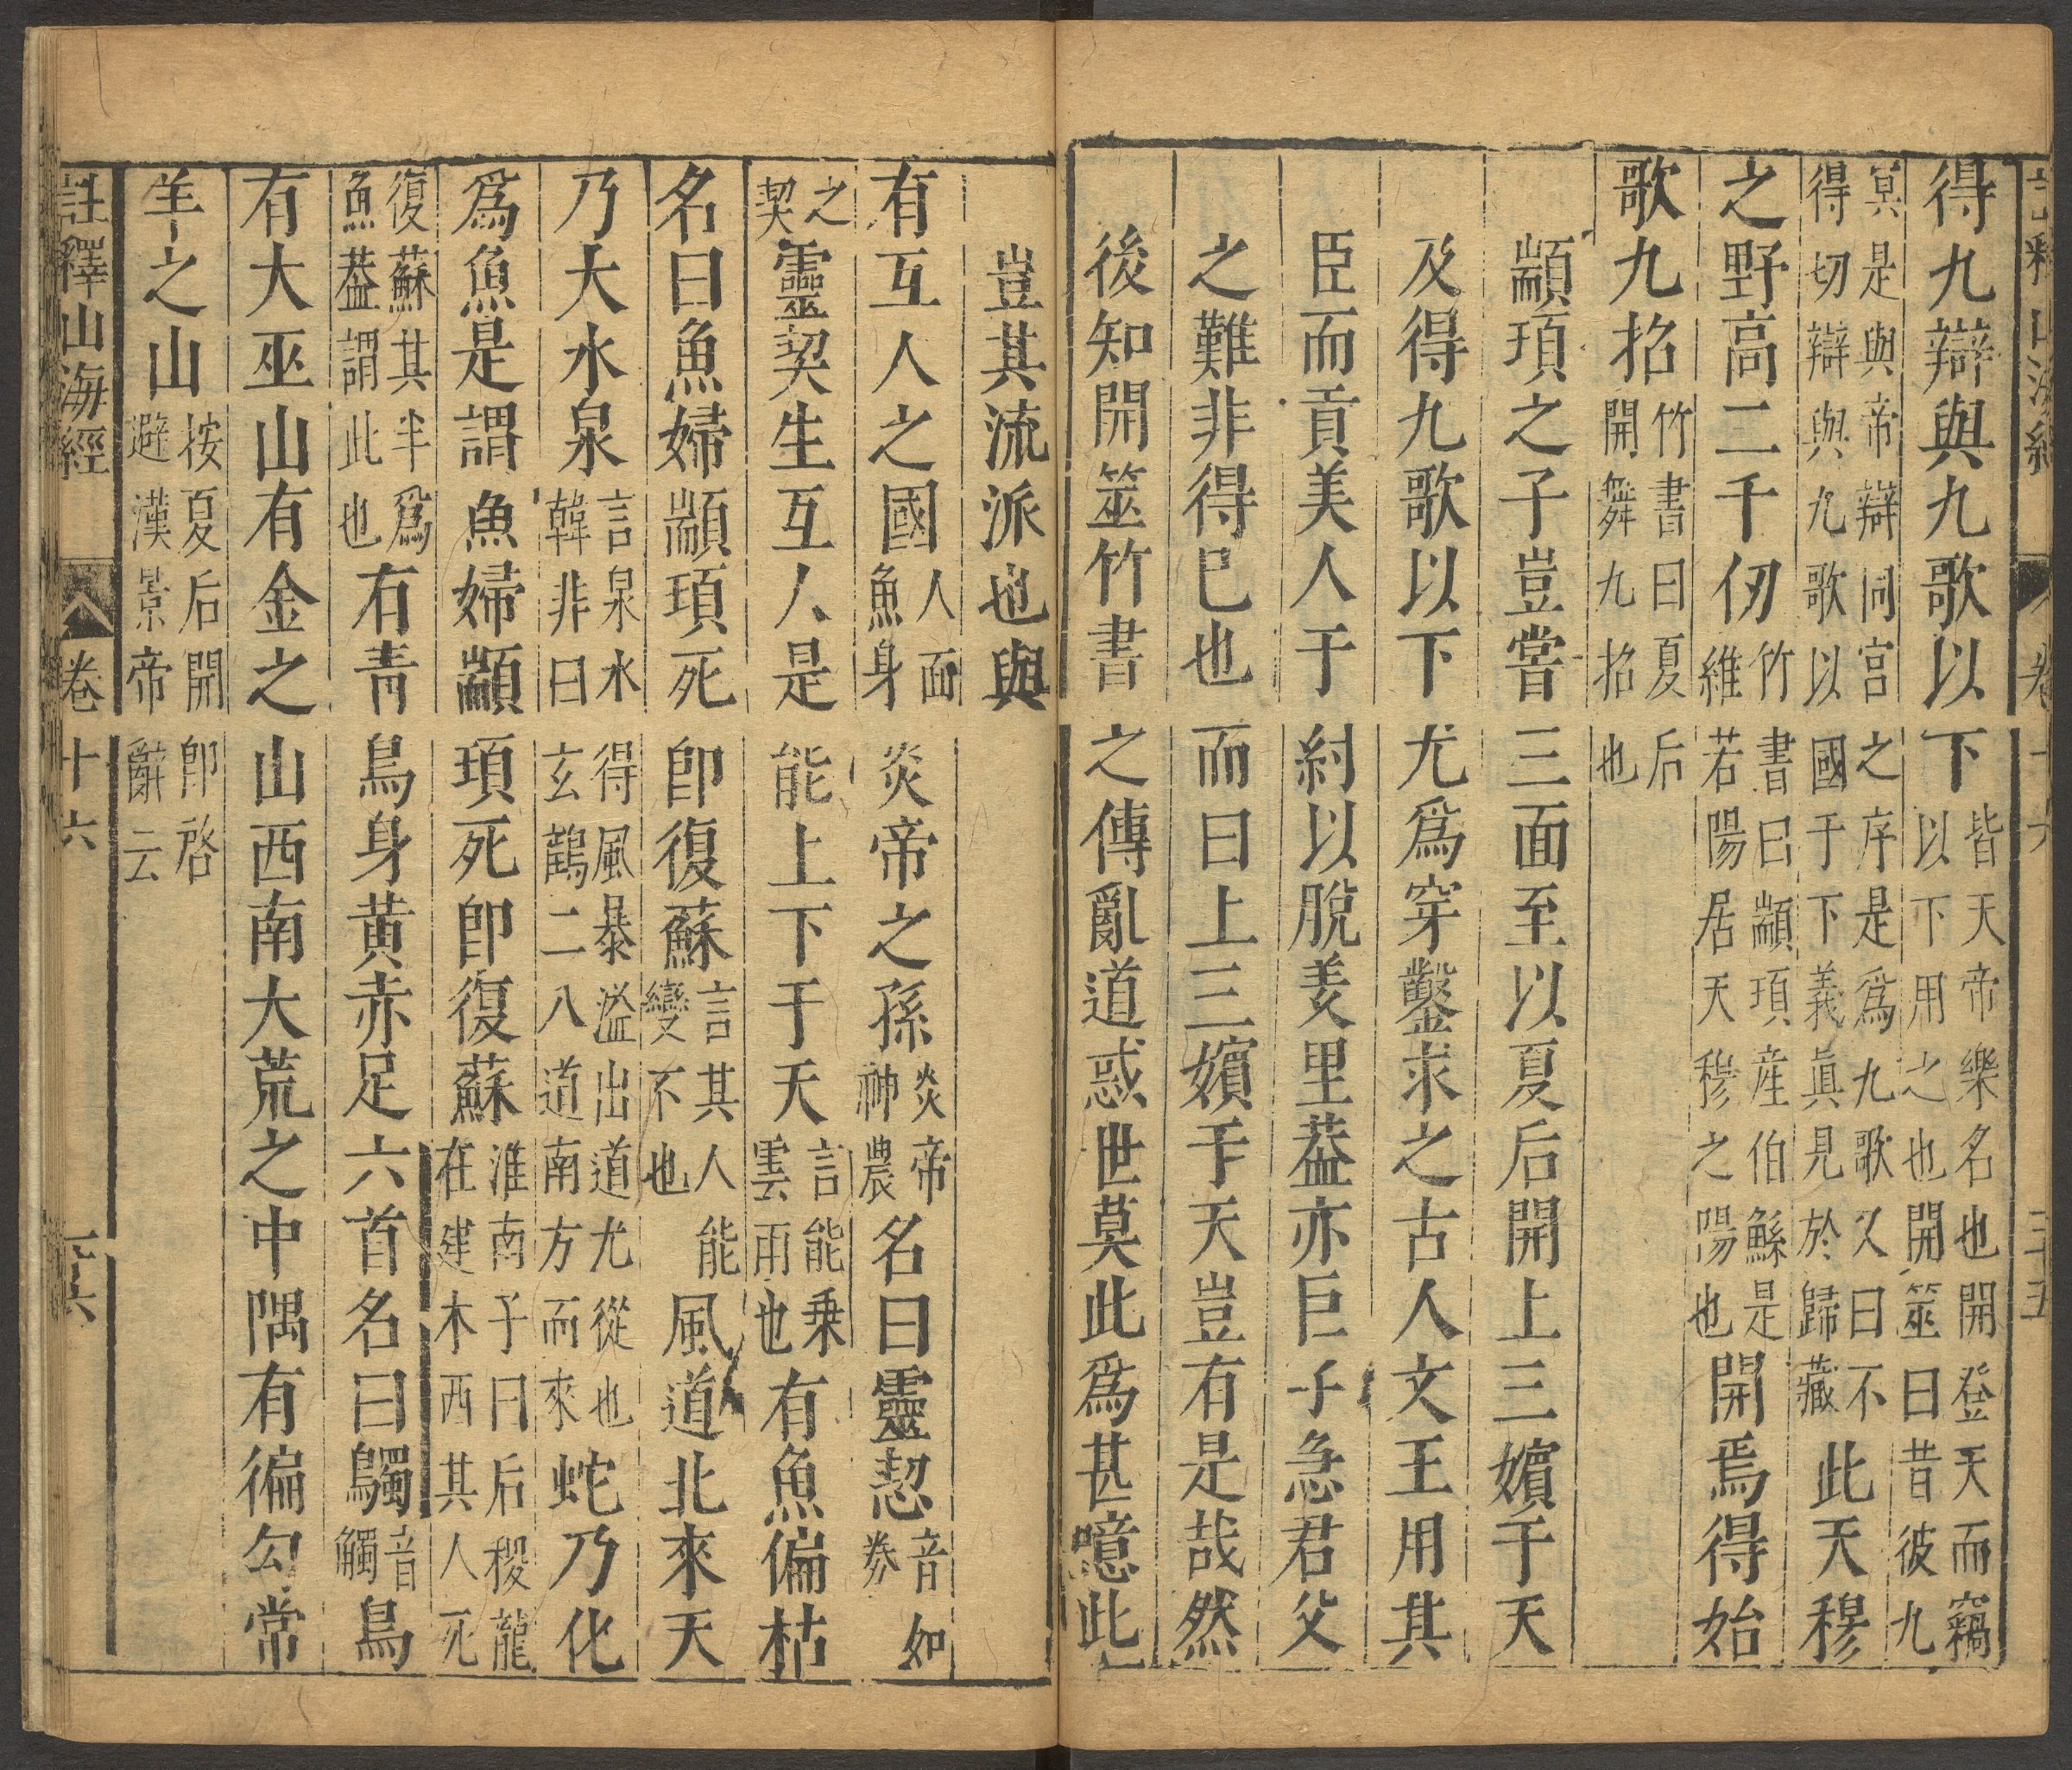 得九辯與九歌以下皆天帝樂名也開登天而竊以下用之也開筮曰昔彼九
冥是與帝辯同宮之序是爲九歌又曰不得切辯與九歌以國于下義眞見於歸藏此天穆
之野高二千仞竹書曰顓頊産伯鯀是維若陽居天穆之陽也開焉得始
歌九招竹書曰夏后開舞九招也
顓頊之子豈嘗三面至以夏后開上三嬪于天
及得九歌以下尤爲穿鑿求之古人文王用其
臣而貢美人于紂以脫羑里葢亦巨子急君父
之難非得已也而曰上三嬪于天豈有是哉然
後知開筮竹書之傳亂道惑世莫此爲甚噫此
豈其流派也與
有互人之國人面魚身炎帝之孫炎帝神農名曰靈恝音如券
之契靈契生互人是能上下于天言能乗雲雨也有魚偏枯
名曰魚婦顓頊死卽復蘇言其人能變不也風道北來天
乃大水泉言泉水得風暴溢出道尤從也韓非曰玄鶴二八道南方而來蛇乃化
爲魚是謂魚婦顓頊死卽復蘇淮南子曰后稷龍在建木西其人死
復蘇其半爲魚葢謂此也有靑鳥身黄赤足六首名曰鸀音觸鳥
有大巫山有金之山西南大荒之中隅有徧勾常
羊之山按夏后開卽啓避漢景帝諱云
註釋山海經 卷十六 三六